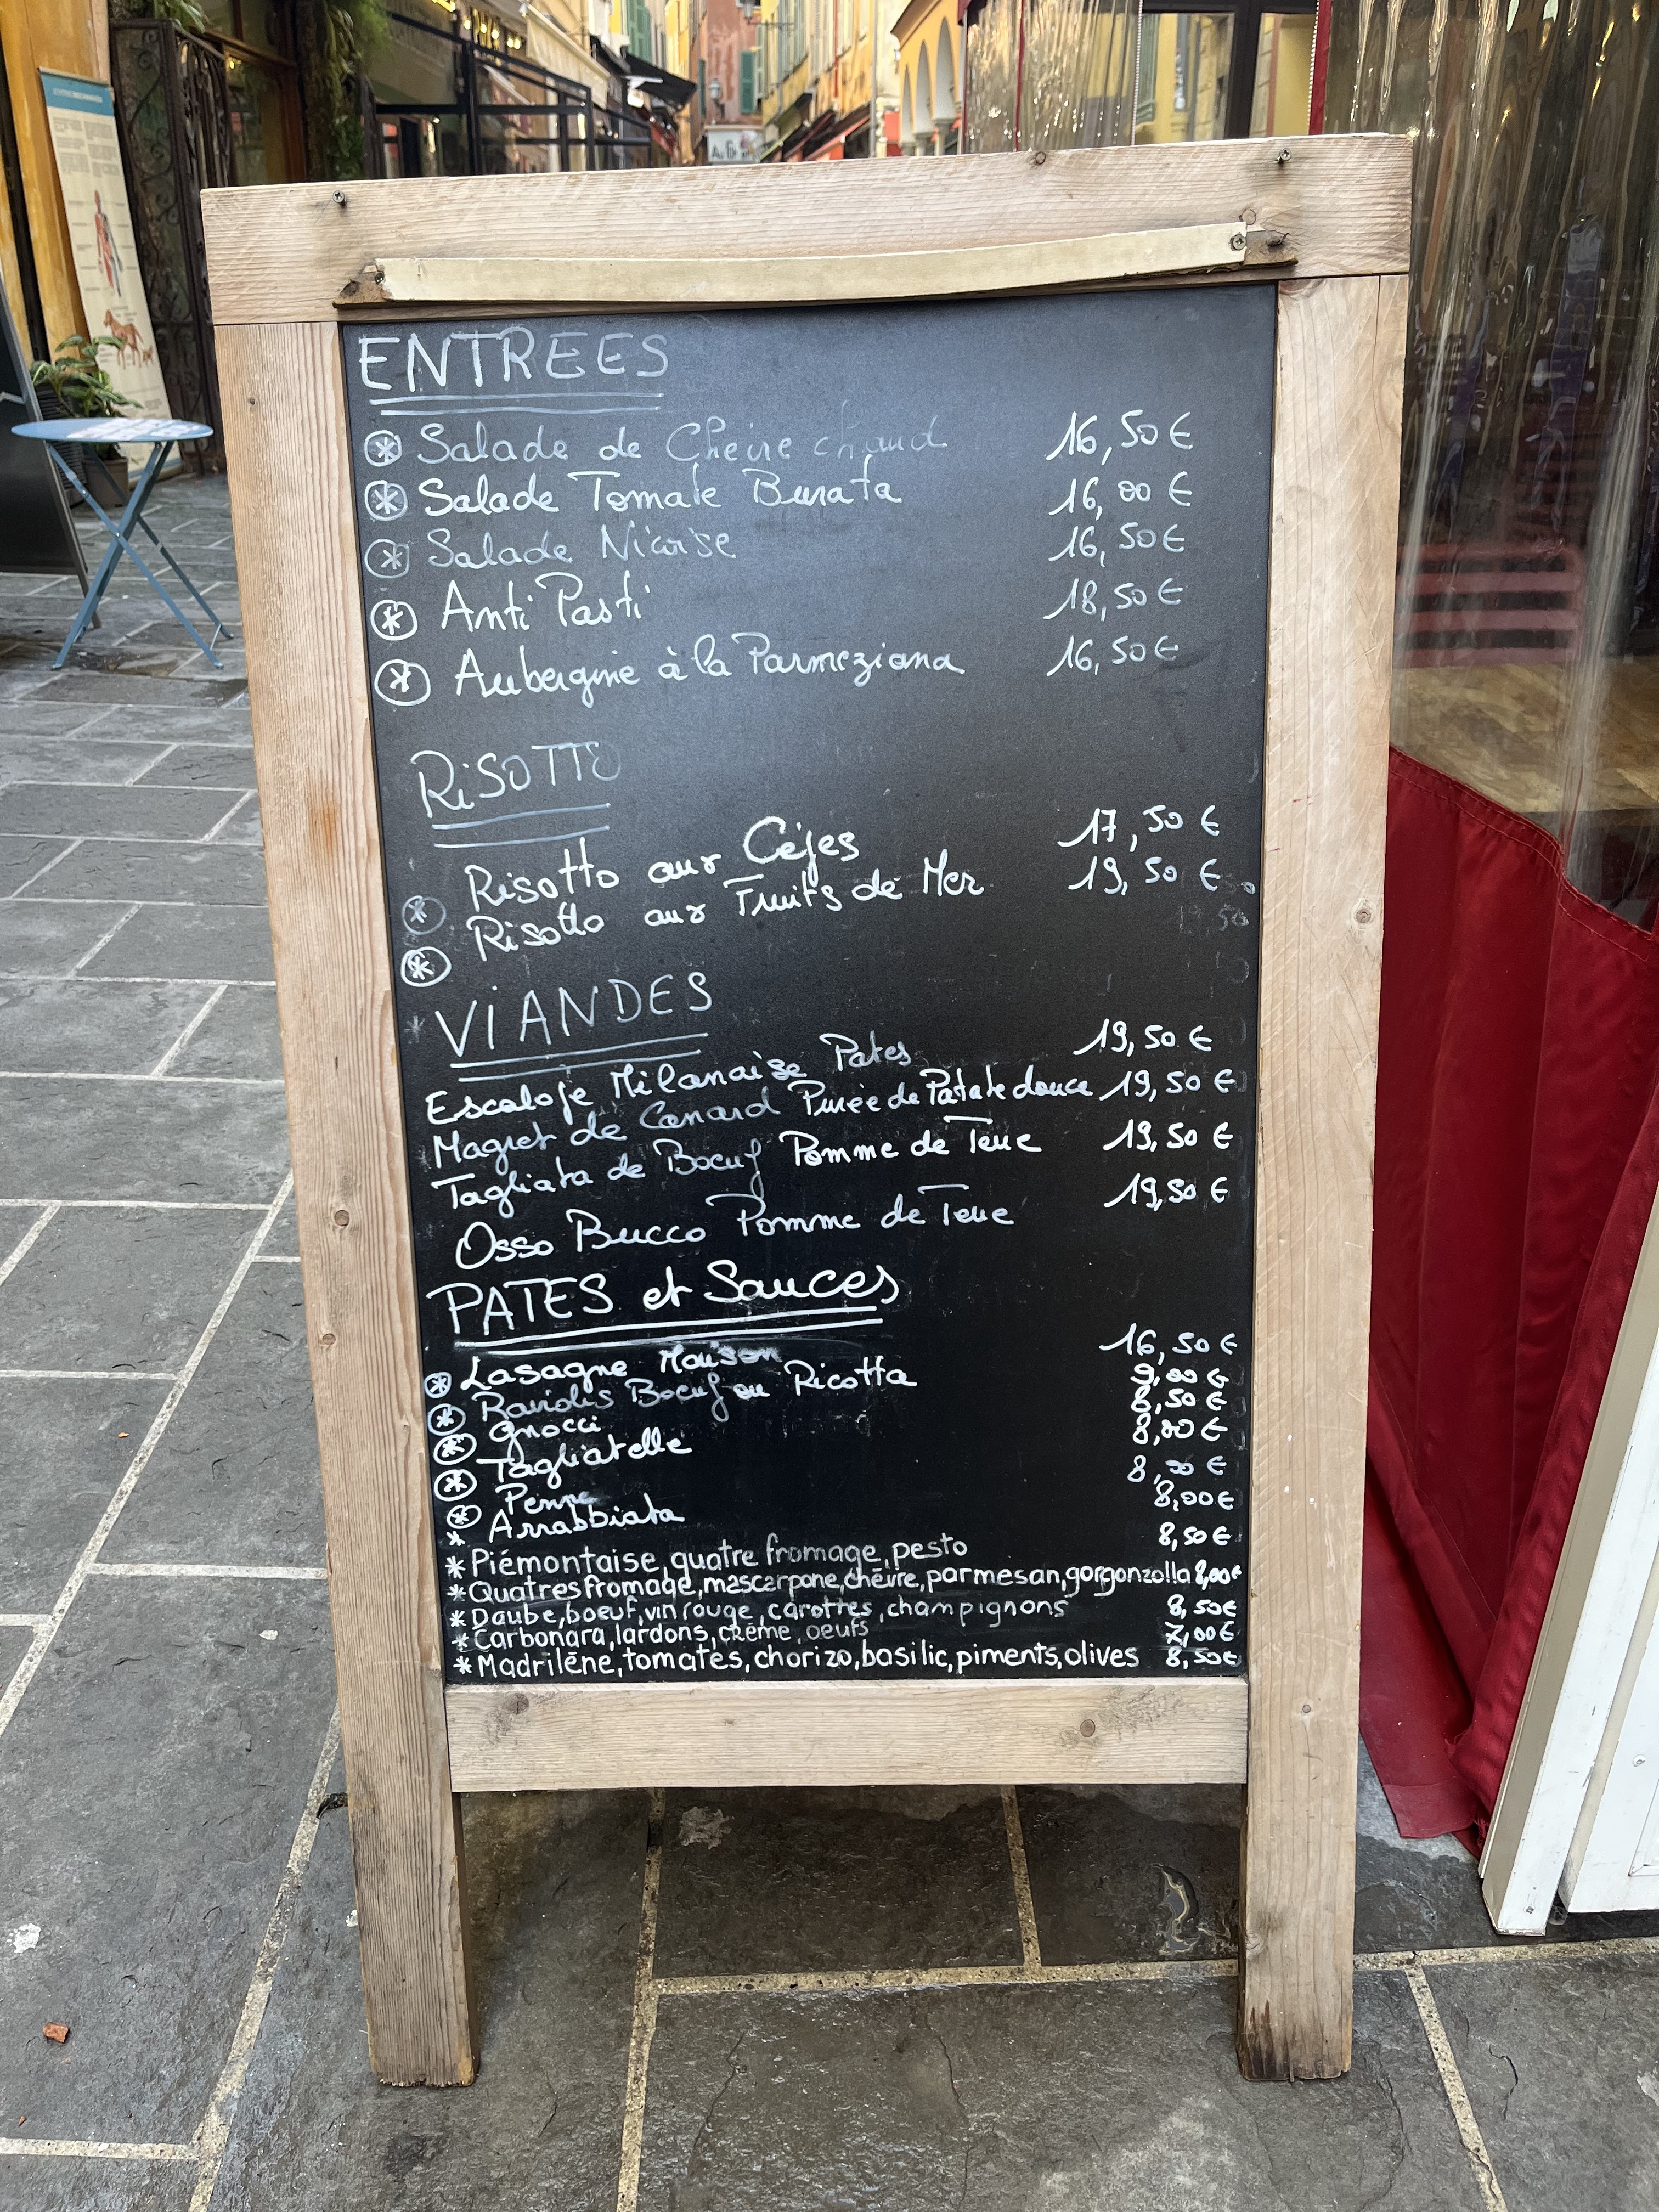 ENTREES
Salade de Chèvre chaud 16,50 €
Salade Tomate Burata 16,00 €
Salade Nicoise 16,50 €
Anti Pasti 18,50 €
Aubergine à la Parmeziana 16,50 €
RiSOTTO
Risotto aux Cèpes 17,50 €
Risotto aux Fruits de Mer 19,50 €
19,50
ViANDES
Escalope Milanaise Pates 19,50 €
Magret de Canard Purée de Patate douce 19,50 €
Tagliata de Boeuf Pomme de Terre 19,50 €
Osso Bucco Pomme de Terre 19,50 €
PATES et Sauces
Lasagne Maison 16,50 €
Raviolis Boeuf ou Ricotta 9,00 €
Gnocci 8,50 €
Tagliatelle 8,00 €
Penne 8,00 €
Arrabbiata 8,00 €
*Piémontaise,quatre fromage,pesto 8,50 €
*Quatres fromage,mascarpone,chèvre,parmesan,gorgonzolla 8,00€
*Daube,boeuf,vin rouge,carottes,champignons 8,50€
*Carbonara,lardons,crème,oeufs 7,00€
*Madrilène,tomates,chorizo,basilic,piments,olives 8,50€